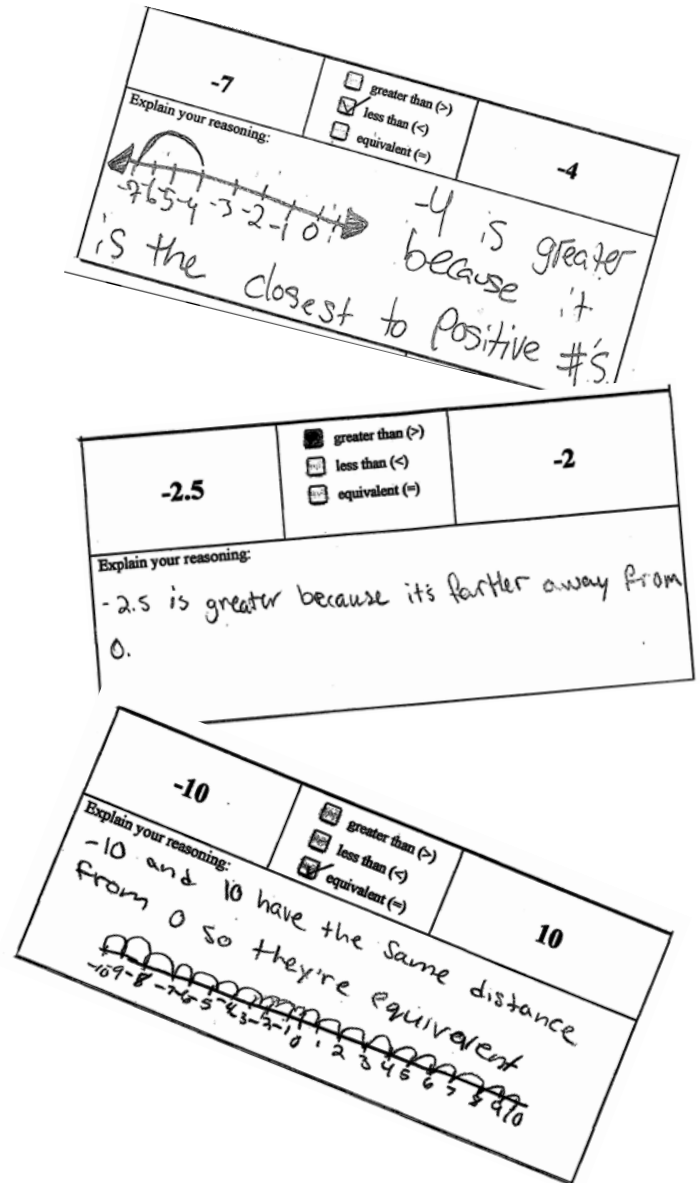 -7
greater than (>)
less than (<)
equivalent (=)
-4
Explain your reasoning:
-7 -6 -5 -4 -3 -2 -1 0 1
-4 is greater
because it
is the closest to positive #'s.
-2.5
greater than (>)
less than (<)
equivalent (=)
-2
Explain your reasoning:
-2.5 is greater because it's farther away from
0.
-10
greater than (>)
less than (<)
equivalent (=)
10
Explain your reasoning:
-10 and 10 have the same distance
from 0 so they're equivalent
-10 -9 -8 -7 -6 -5 -4 -3 -2 -1 0 1 2 3 4 5 6 7 8 9 10